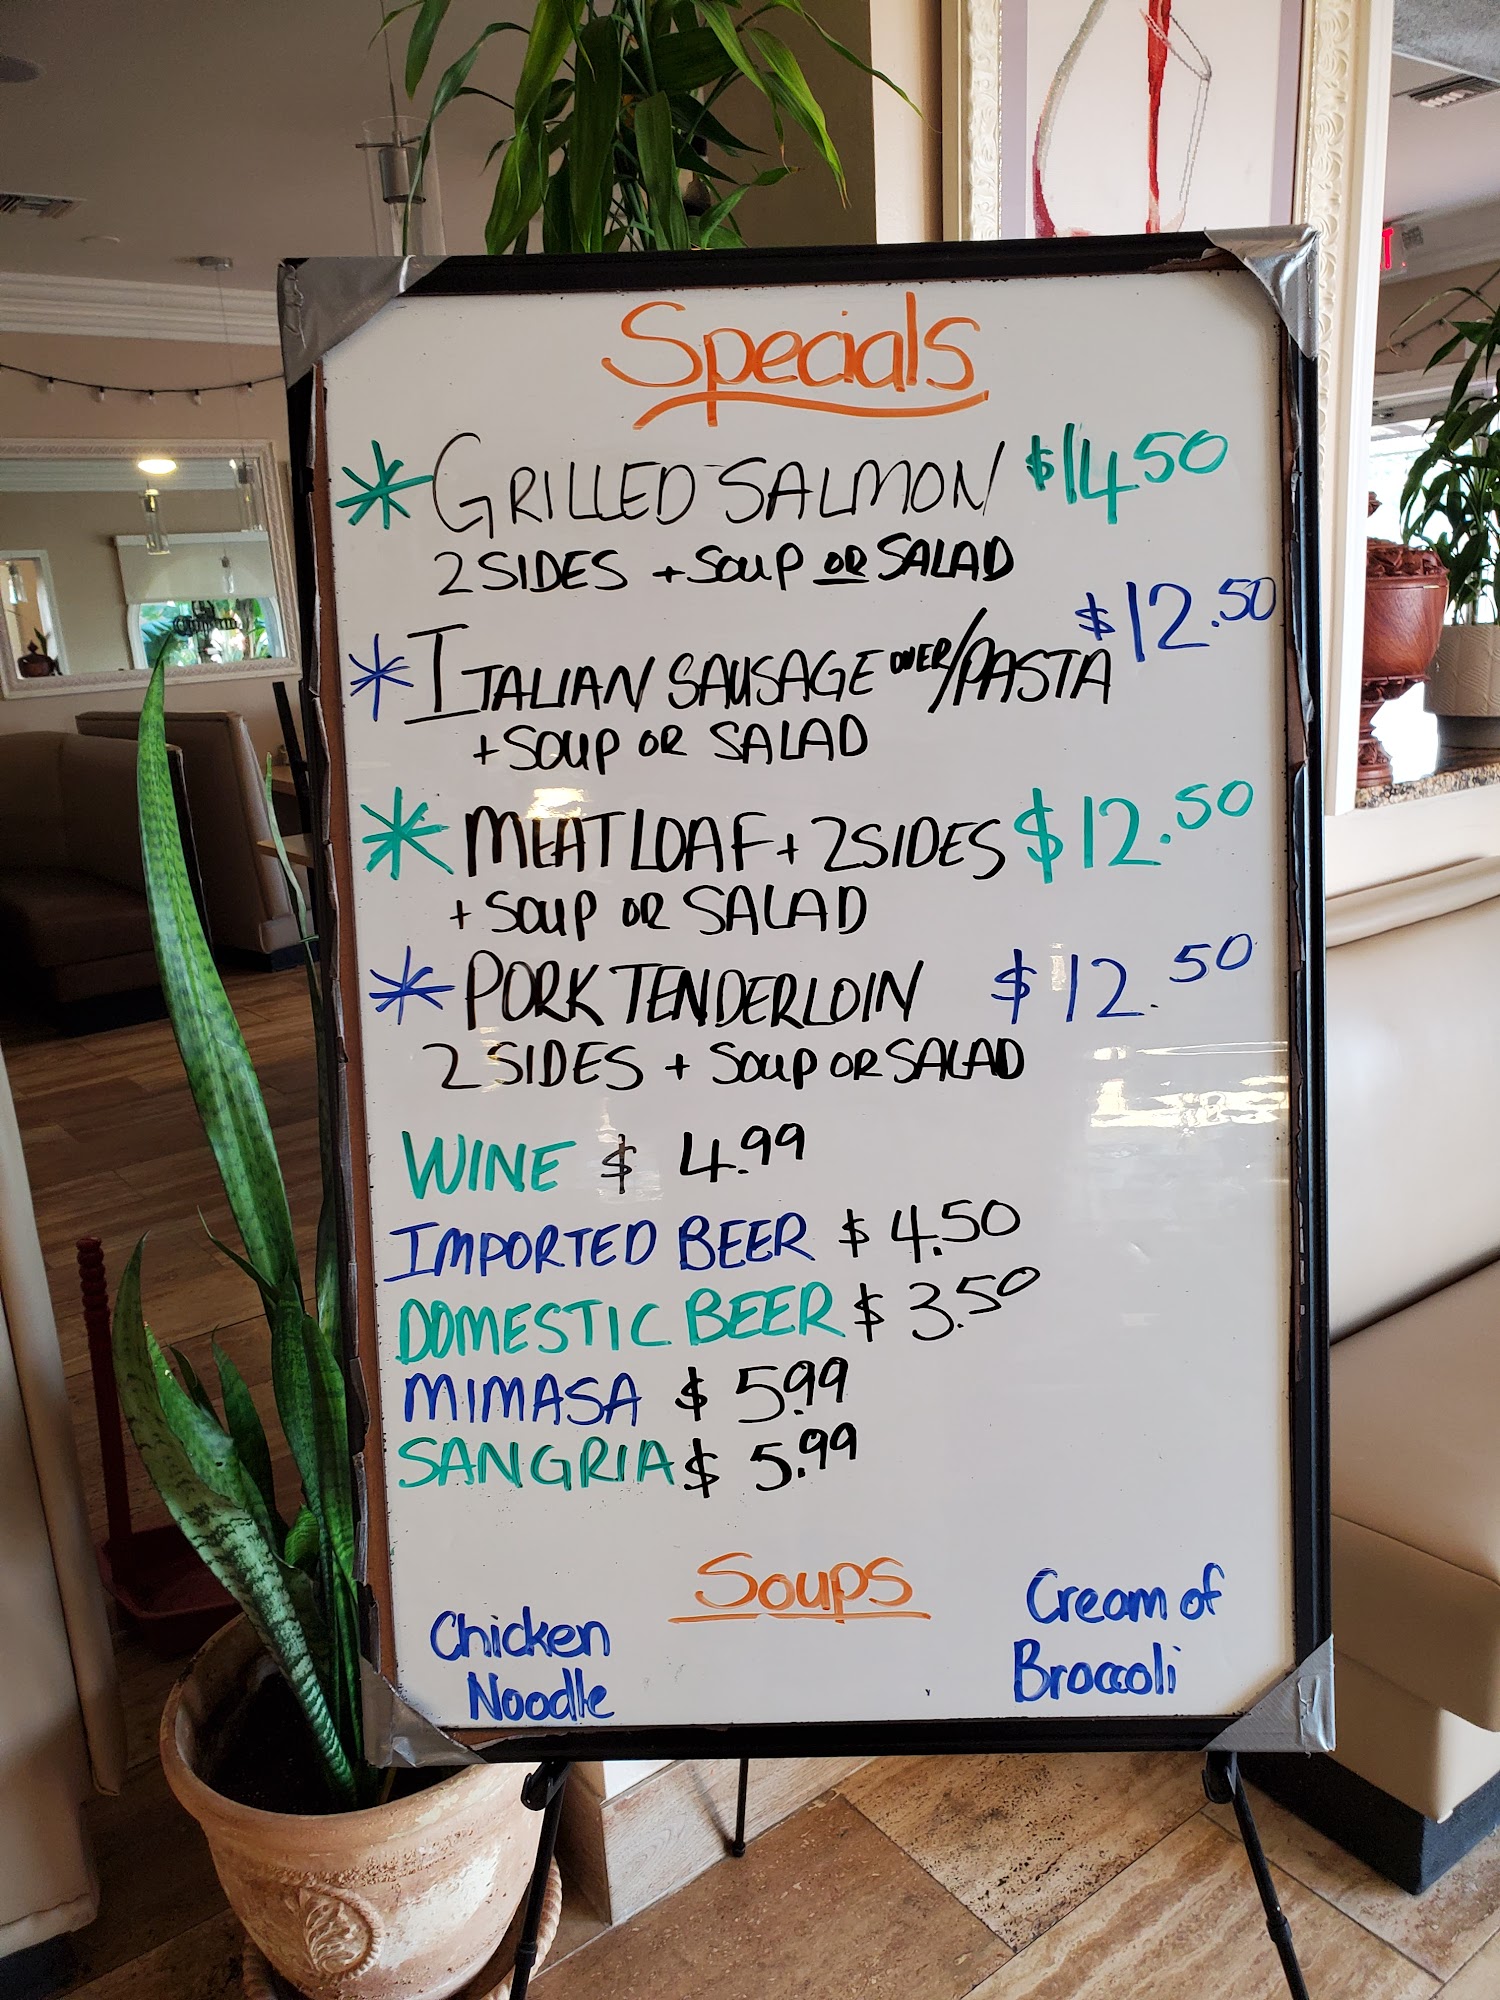 Specials
* GRILLED SALMON $14.50
2 SIDES + SOUP OR SALAD
* ITALIAN SAUSAGE OVER/PASTA $12.50
+ SOUP OR SALAD
* MEATLOAF + 2 SIDES $12.50
+ SOUP OR SALAD
* PORK TENDERLOIN $12.50
2 SIDES + SOUP OR SALAD
WINE $ 4.99
IMPORTED BEER $ 4.50
DOMESTIC BEER $ 3.50
MIMASA $ 5.99
SANGRIA $ 5.99
Soups
Chicken Noodle
Cream of Broccoli